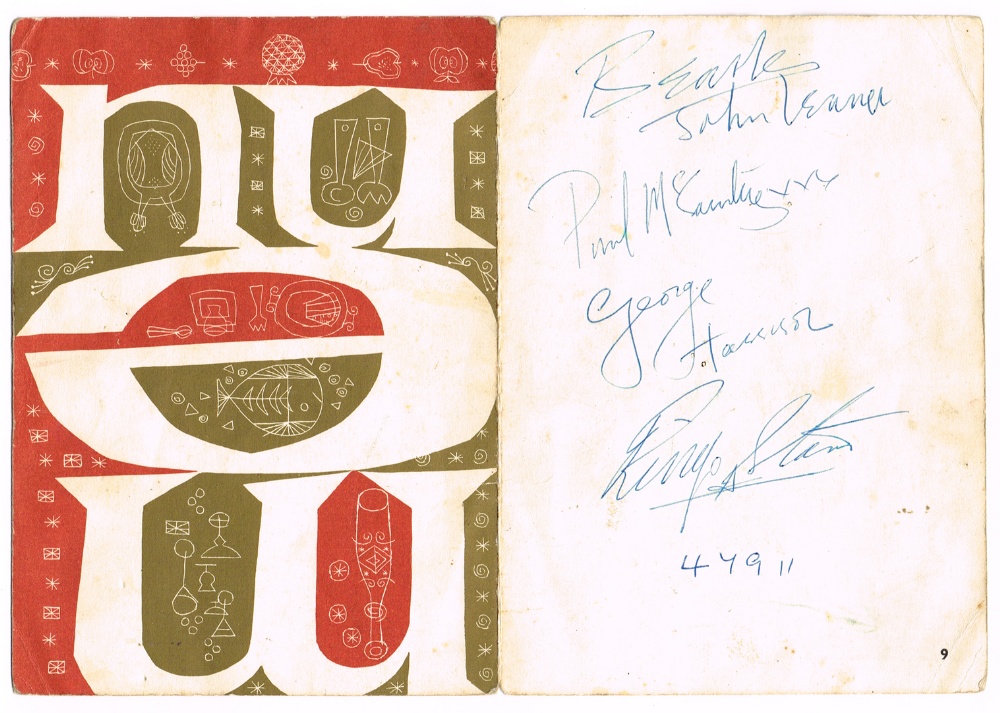 Beatles
John Lennon
Paul McCartney xxx
George
Harrison
Ringo Starr
47911
9